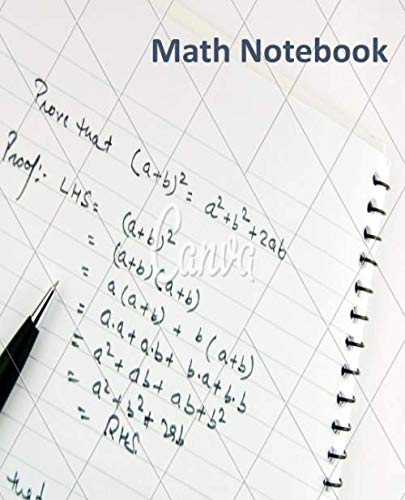 Math Notebook
Prove that (a+b)² = a²+b²+2ab
Proof:- LHS = (a+b)²
= (a+b)(a+b)
= a(a+b) + b(a+b)
= a.a+a.b+ b.a+b.b
= a²+ ab+ ab+b²
= a²+b²+2ab
= RHS.
that
Canva